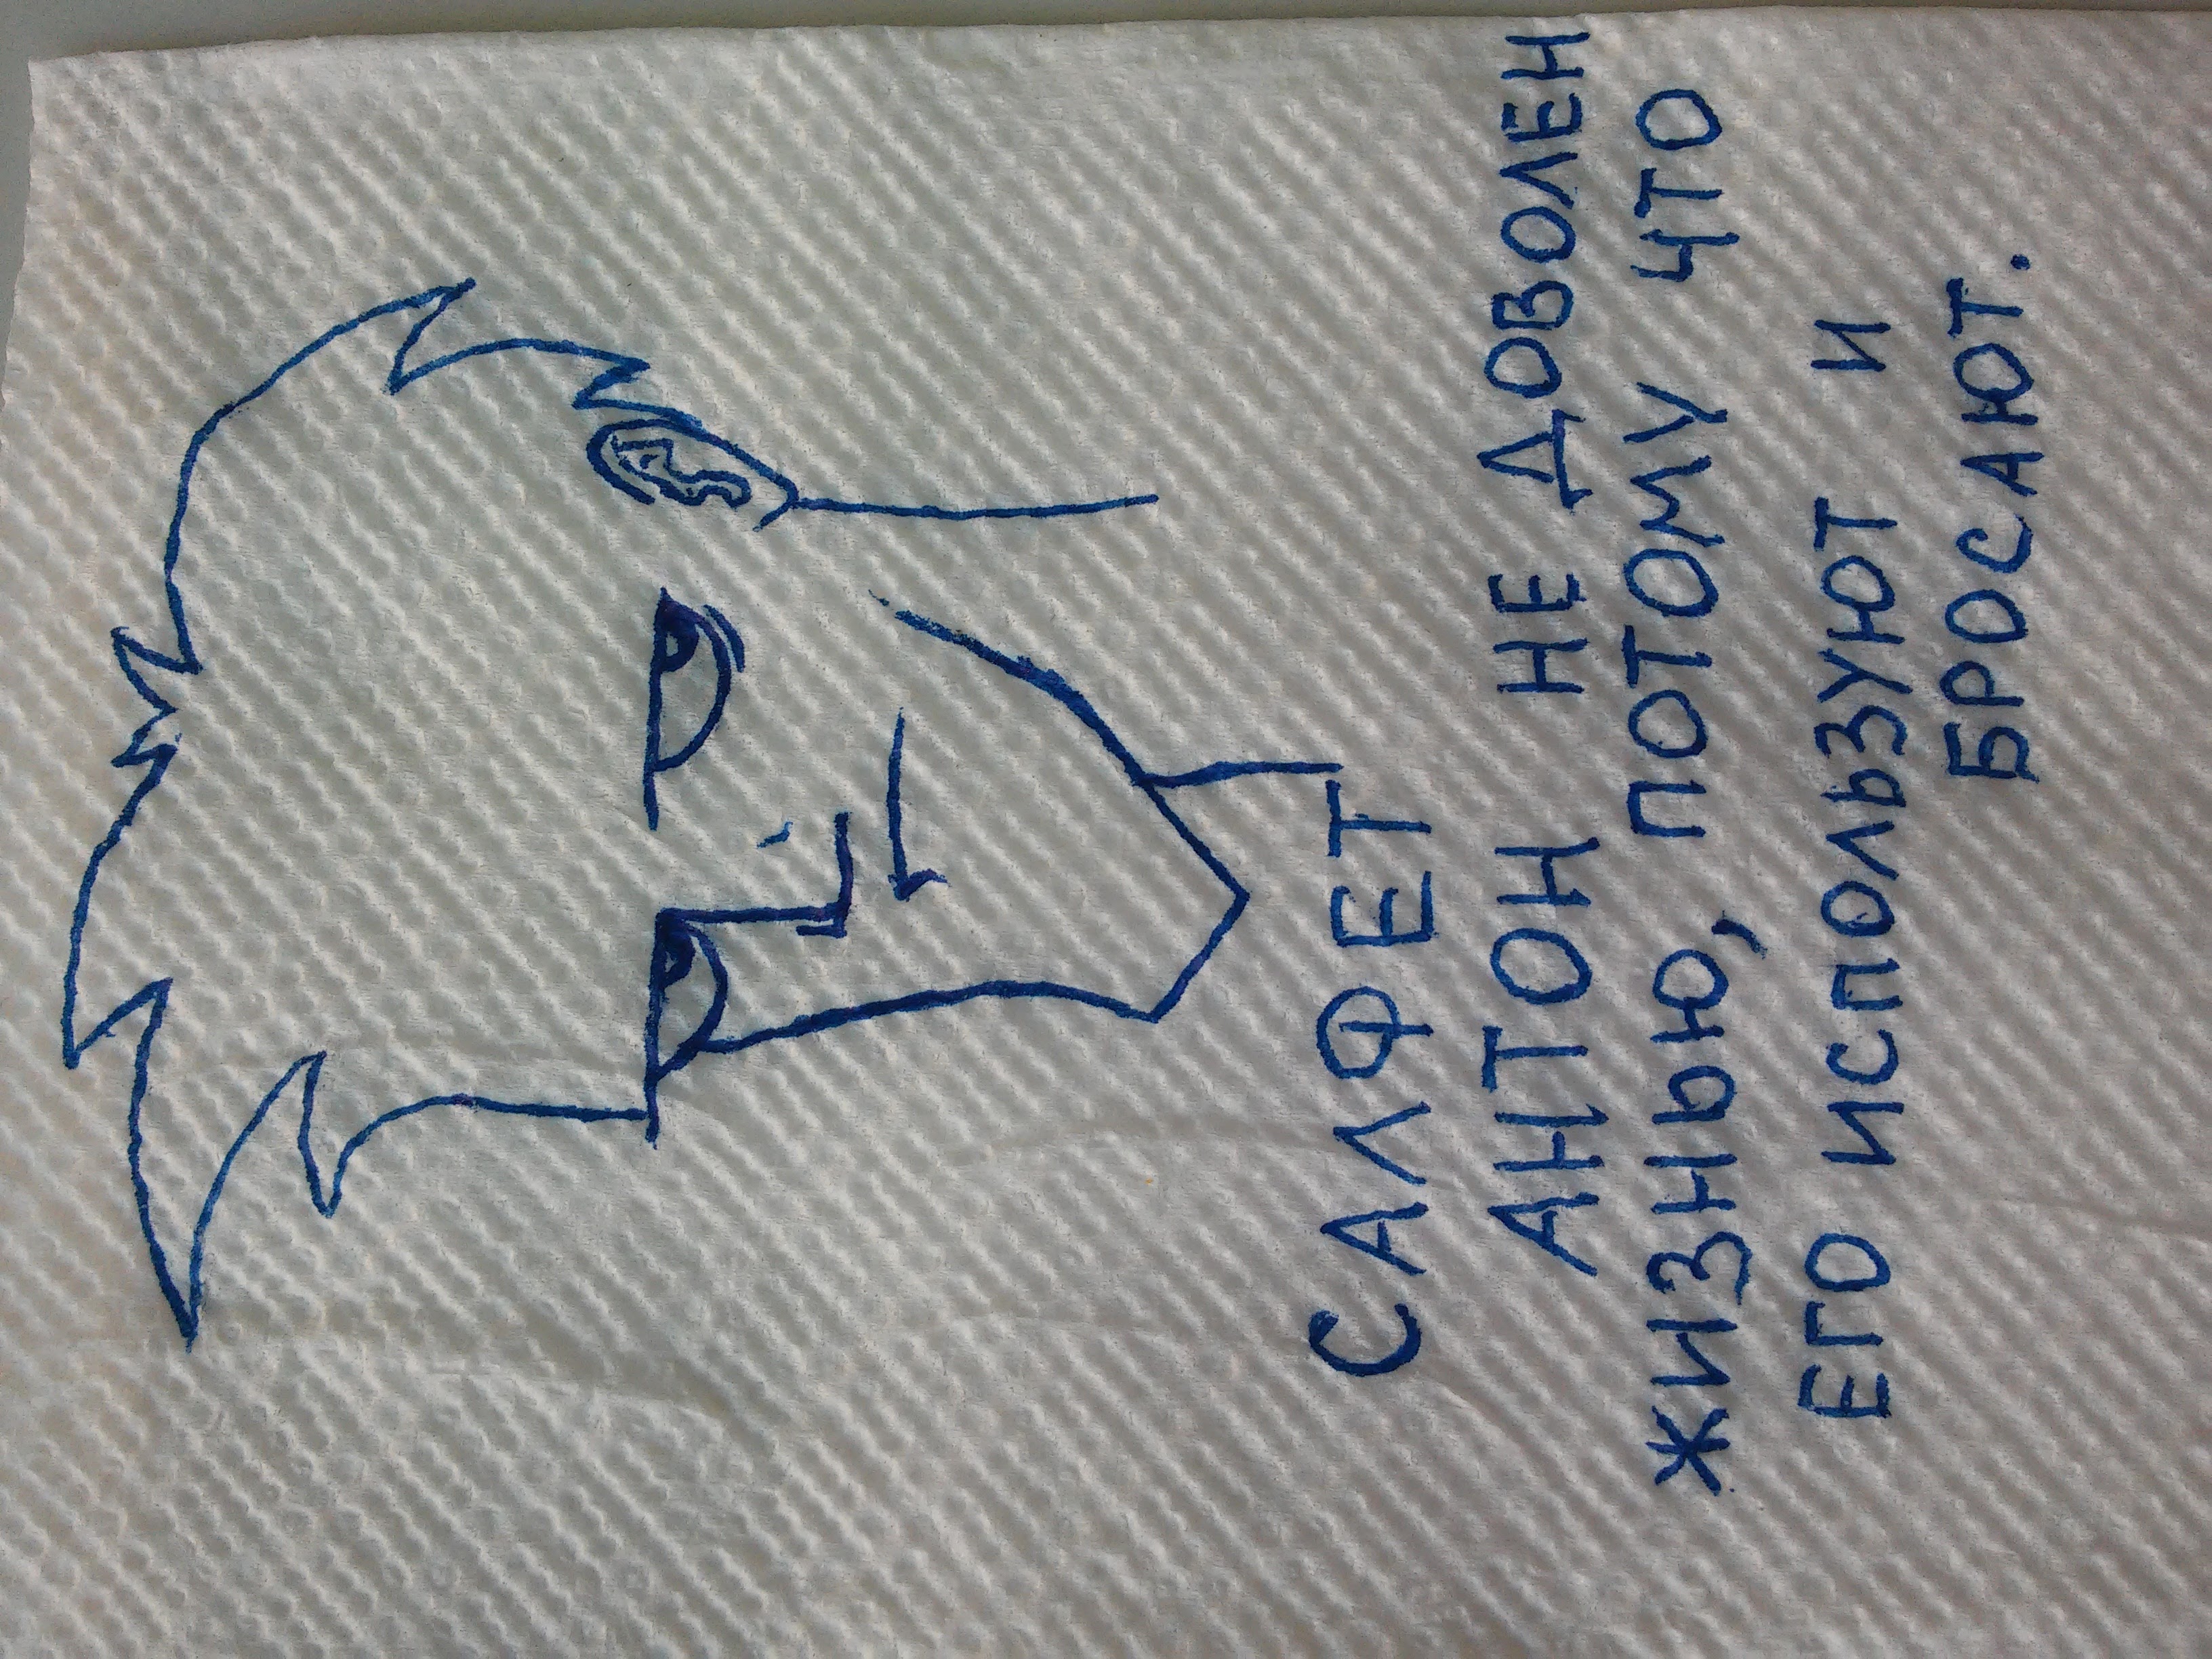 САЛФЕТ
АНТОН НЕ ДОВОЛЕН
ЖИЗНЬЮ, ПОТОМУ ЧТО
ЕГО ИСПОЛЬЗУЮТ И
БРОСАЮТ.